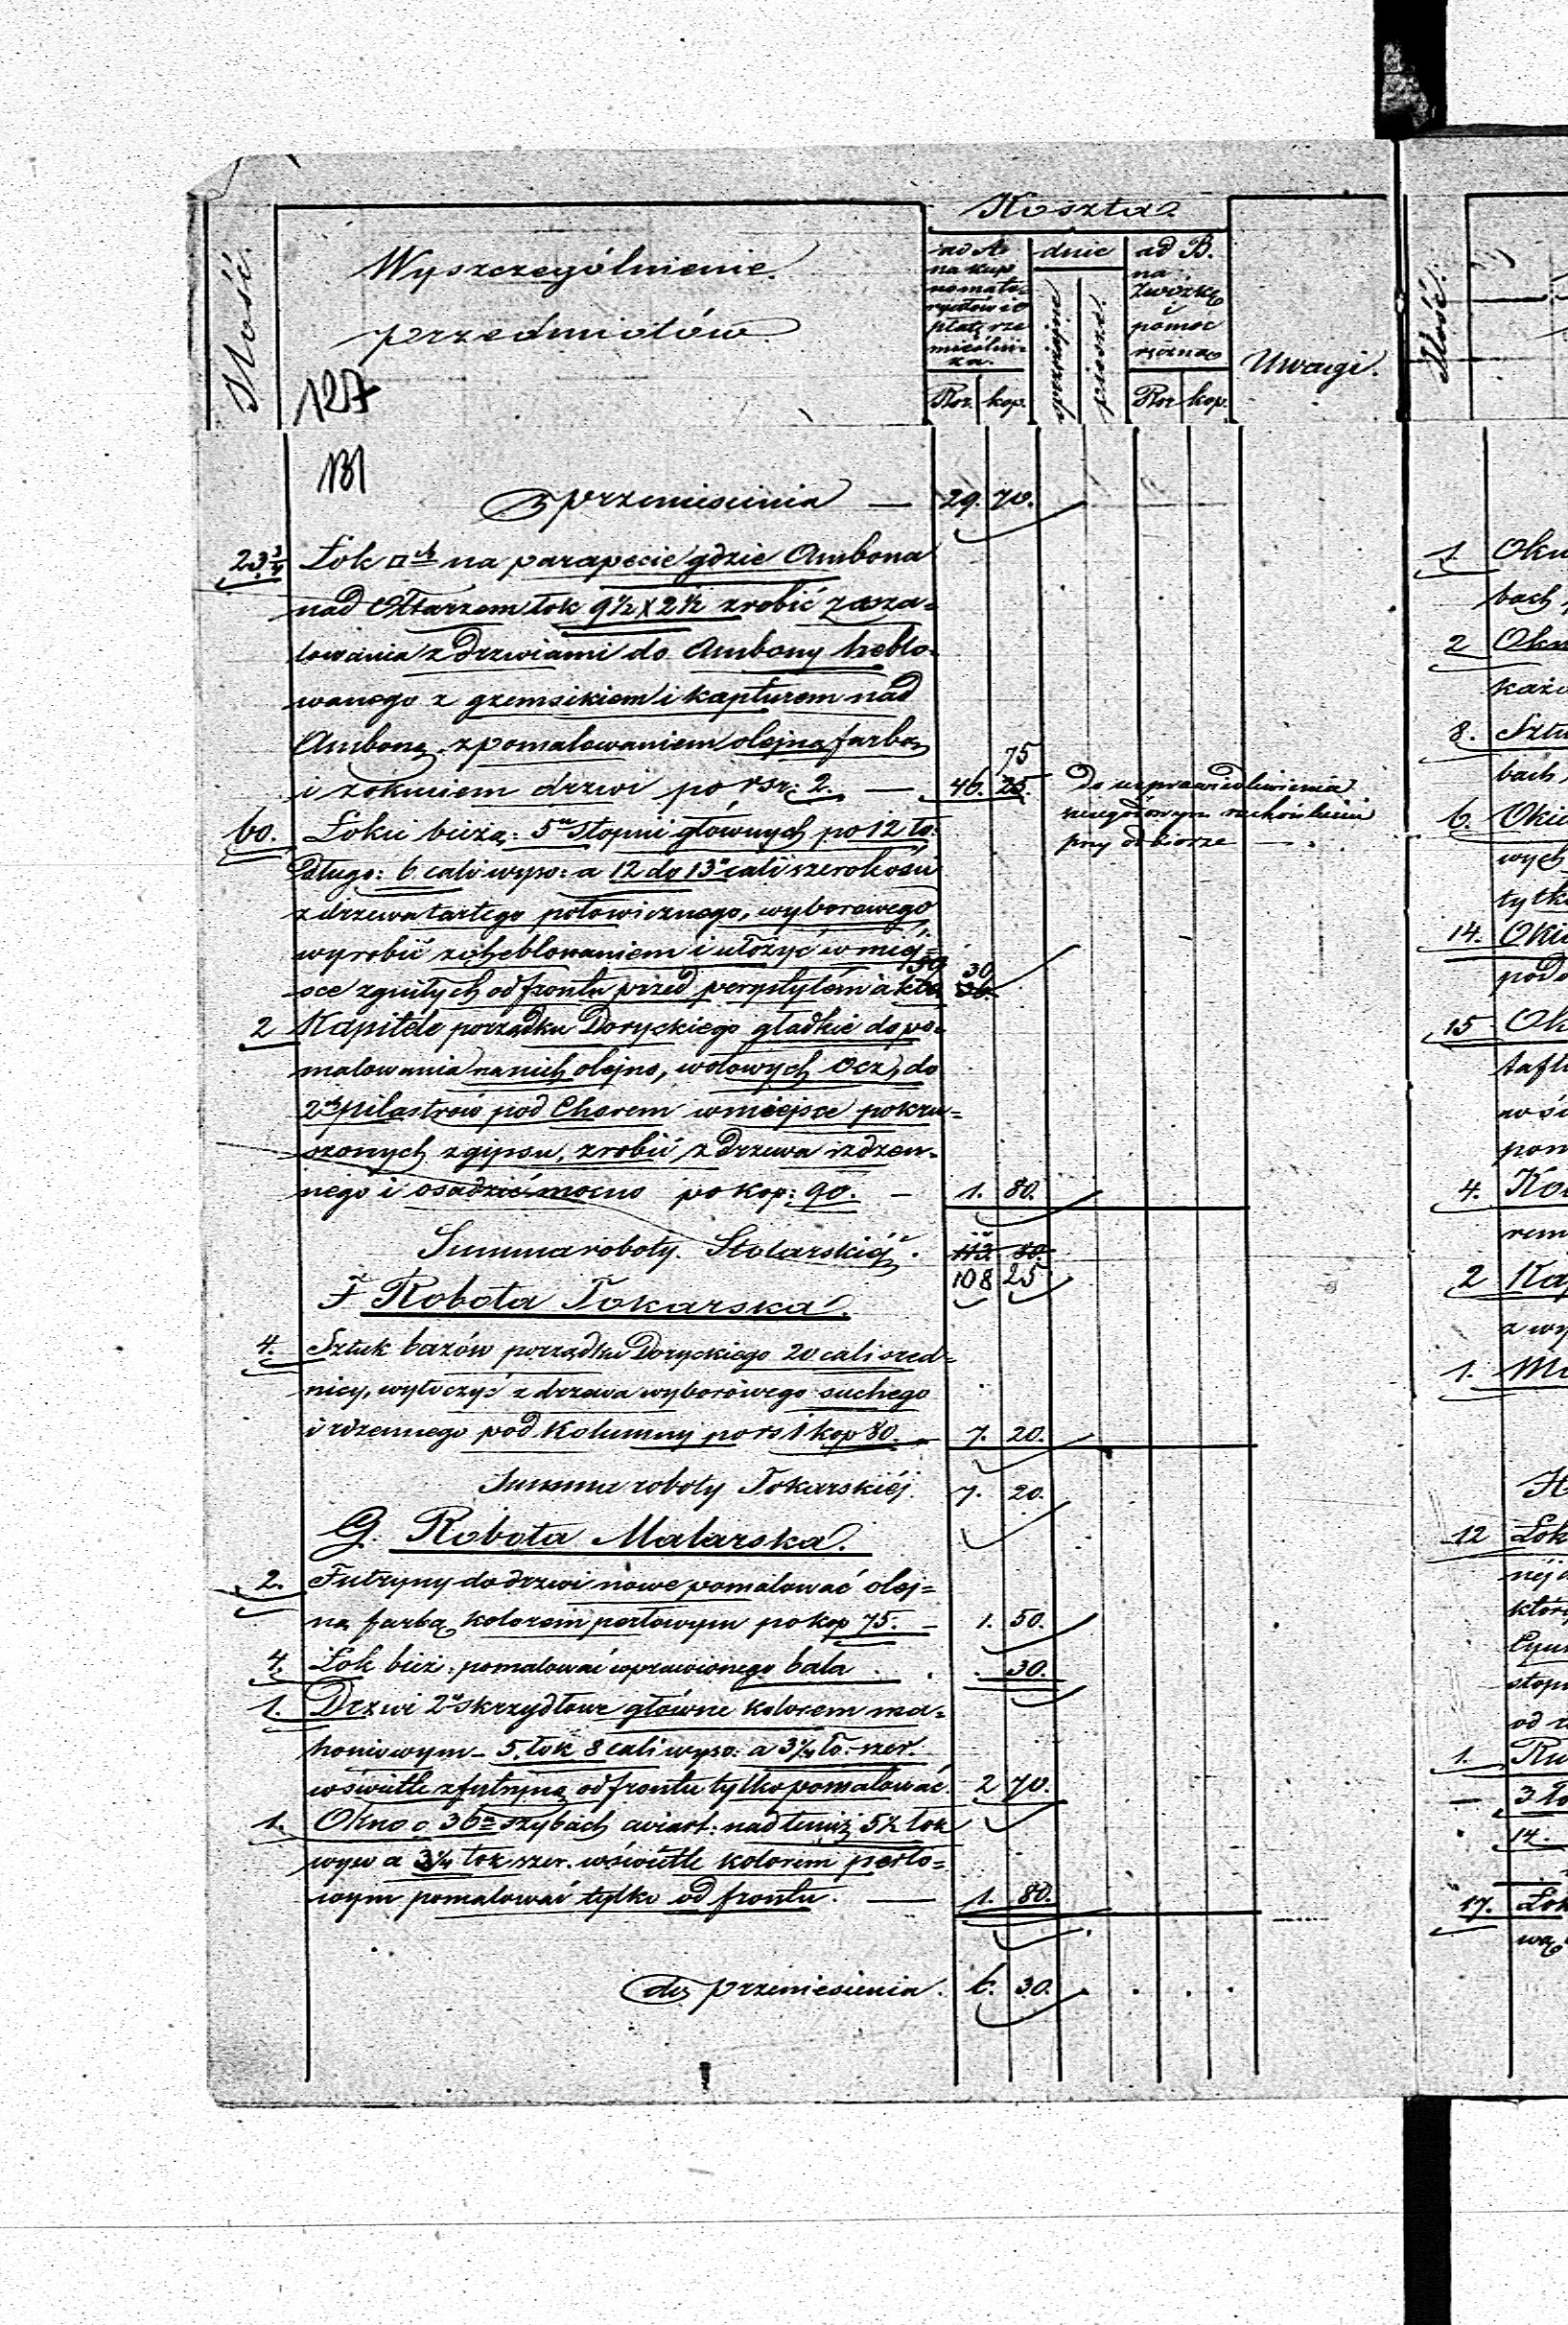 Ilość.
Wyszczególnienie
przedmiotów
127
Koszta
ad A.
na kup
no mate-
ryałów i o
płatę rze
mieślni-
za.
Rsr. kop.
dnie
sprzężajne
piesze.
ad B.
na
Zwózkę
i
pomoc
ręczną
Rsr kop.
Uwagi.
131
Z przeniesienia — 29. 70.
23¾ Łok □ch na parapecie gdzie Ambona
nad Ołtarzem łok 9½ X 2½ zrobić zasza-
lowania z drzwiami do Ambony heblo-
wanego z gzemsikiem i kapturem nad
Amboną z pomalowaniem olejną farbą 75
i zokuciem drzwi po rsr: 2. — 46. 25.
Do usprawiedliwienia
przy odbiorze — .
60. Łokci bieżą: 5u Stopni głównych po 12 ło:
długo: 6 cali wyso: a 12 do 13u cali szerokości
z drzewa tartego połowicznego, wyborowego
wyrobić z oheblowaniem i ułożyć w miej-
sce zgniłych od frontu przed perystylem à kto 50 30
2 Kapitele porządku Doryckiego gładkie do po-
malowania na nich olejno, wołowych ócz, do
2ch pilastrów pod Chorem w miejsce pokru-
szonych z gipsu, zrobić z drzewa rdzen-
nego i osadzić mocno po kop: 90. — 1. 80.
Summa roboty Stolarskiéj. 112. 80.
108 25
F Robota Tokarska.
4. Sztuk bazów porządku Doryckiego 20 cali śred-
nicy, wytoczyć z drzewa wyborówego suchego
i rdzennego pod Kolumny po rs 1 kop 80. — 7. 20.
Summa roboty Tokarskiéj. 7. 20.
G. Robota Malarska.
2. Futryny do drzwi nowe pomalować olej-
ną farbą kolorem perłowym po kop 75. — 1. 50.
4. Łok bież: pomalować wprawionego bala . . 30.
1. Drzwi 2u skrzydłowe główne kolorem ma-
honiowym - 5. łok 8 cali wyso: a 3¼ ło. szer.
w świetle z futryną od frontu tylko pomalować. 2 70.
1. Okno o 36u szybach nad temiż 5½ łok
wyso a 3¼ łok szer. w świetle kolorem perło-
wym pomalować tylko od frontu. — 1. 80.
do przeniesienia. 6. 30.
Ilość.
1. Okn
bach
2 Okn
każd
8. Sztu
bach
6. Oki
wych
tytk
14. Oki
pod
15 Ok
tafl
w ś
pom
4. Ko
rem
2 Kap
z wy
1. Ma
H
12 Łok
néj
któr
stop
od
1. Ru
— 3 ło
14.
17. Łok
wą